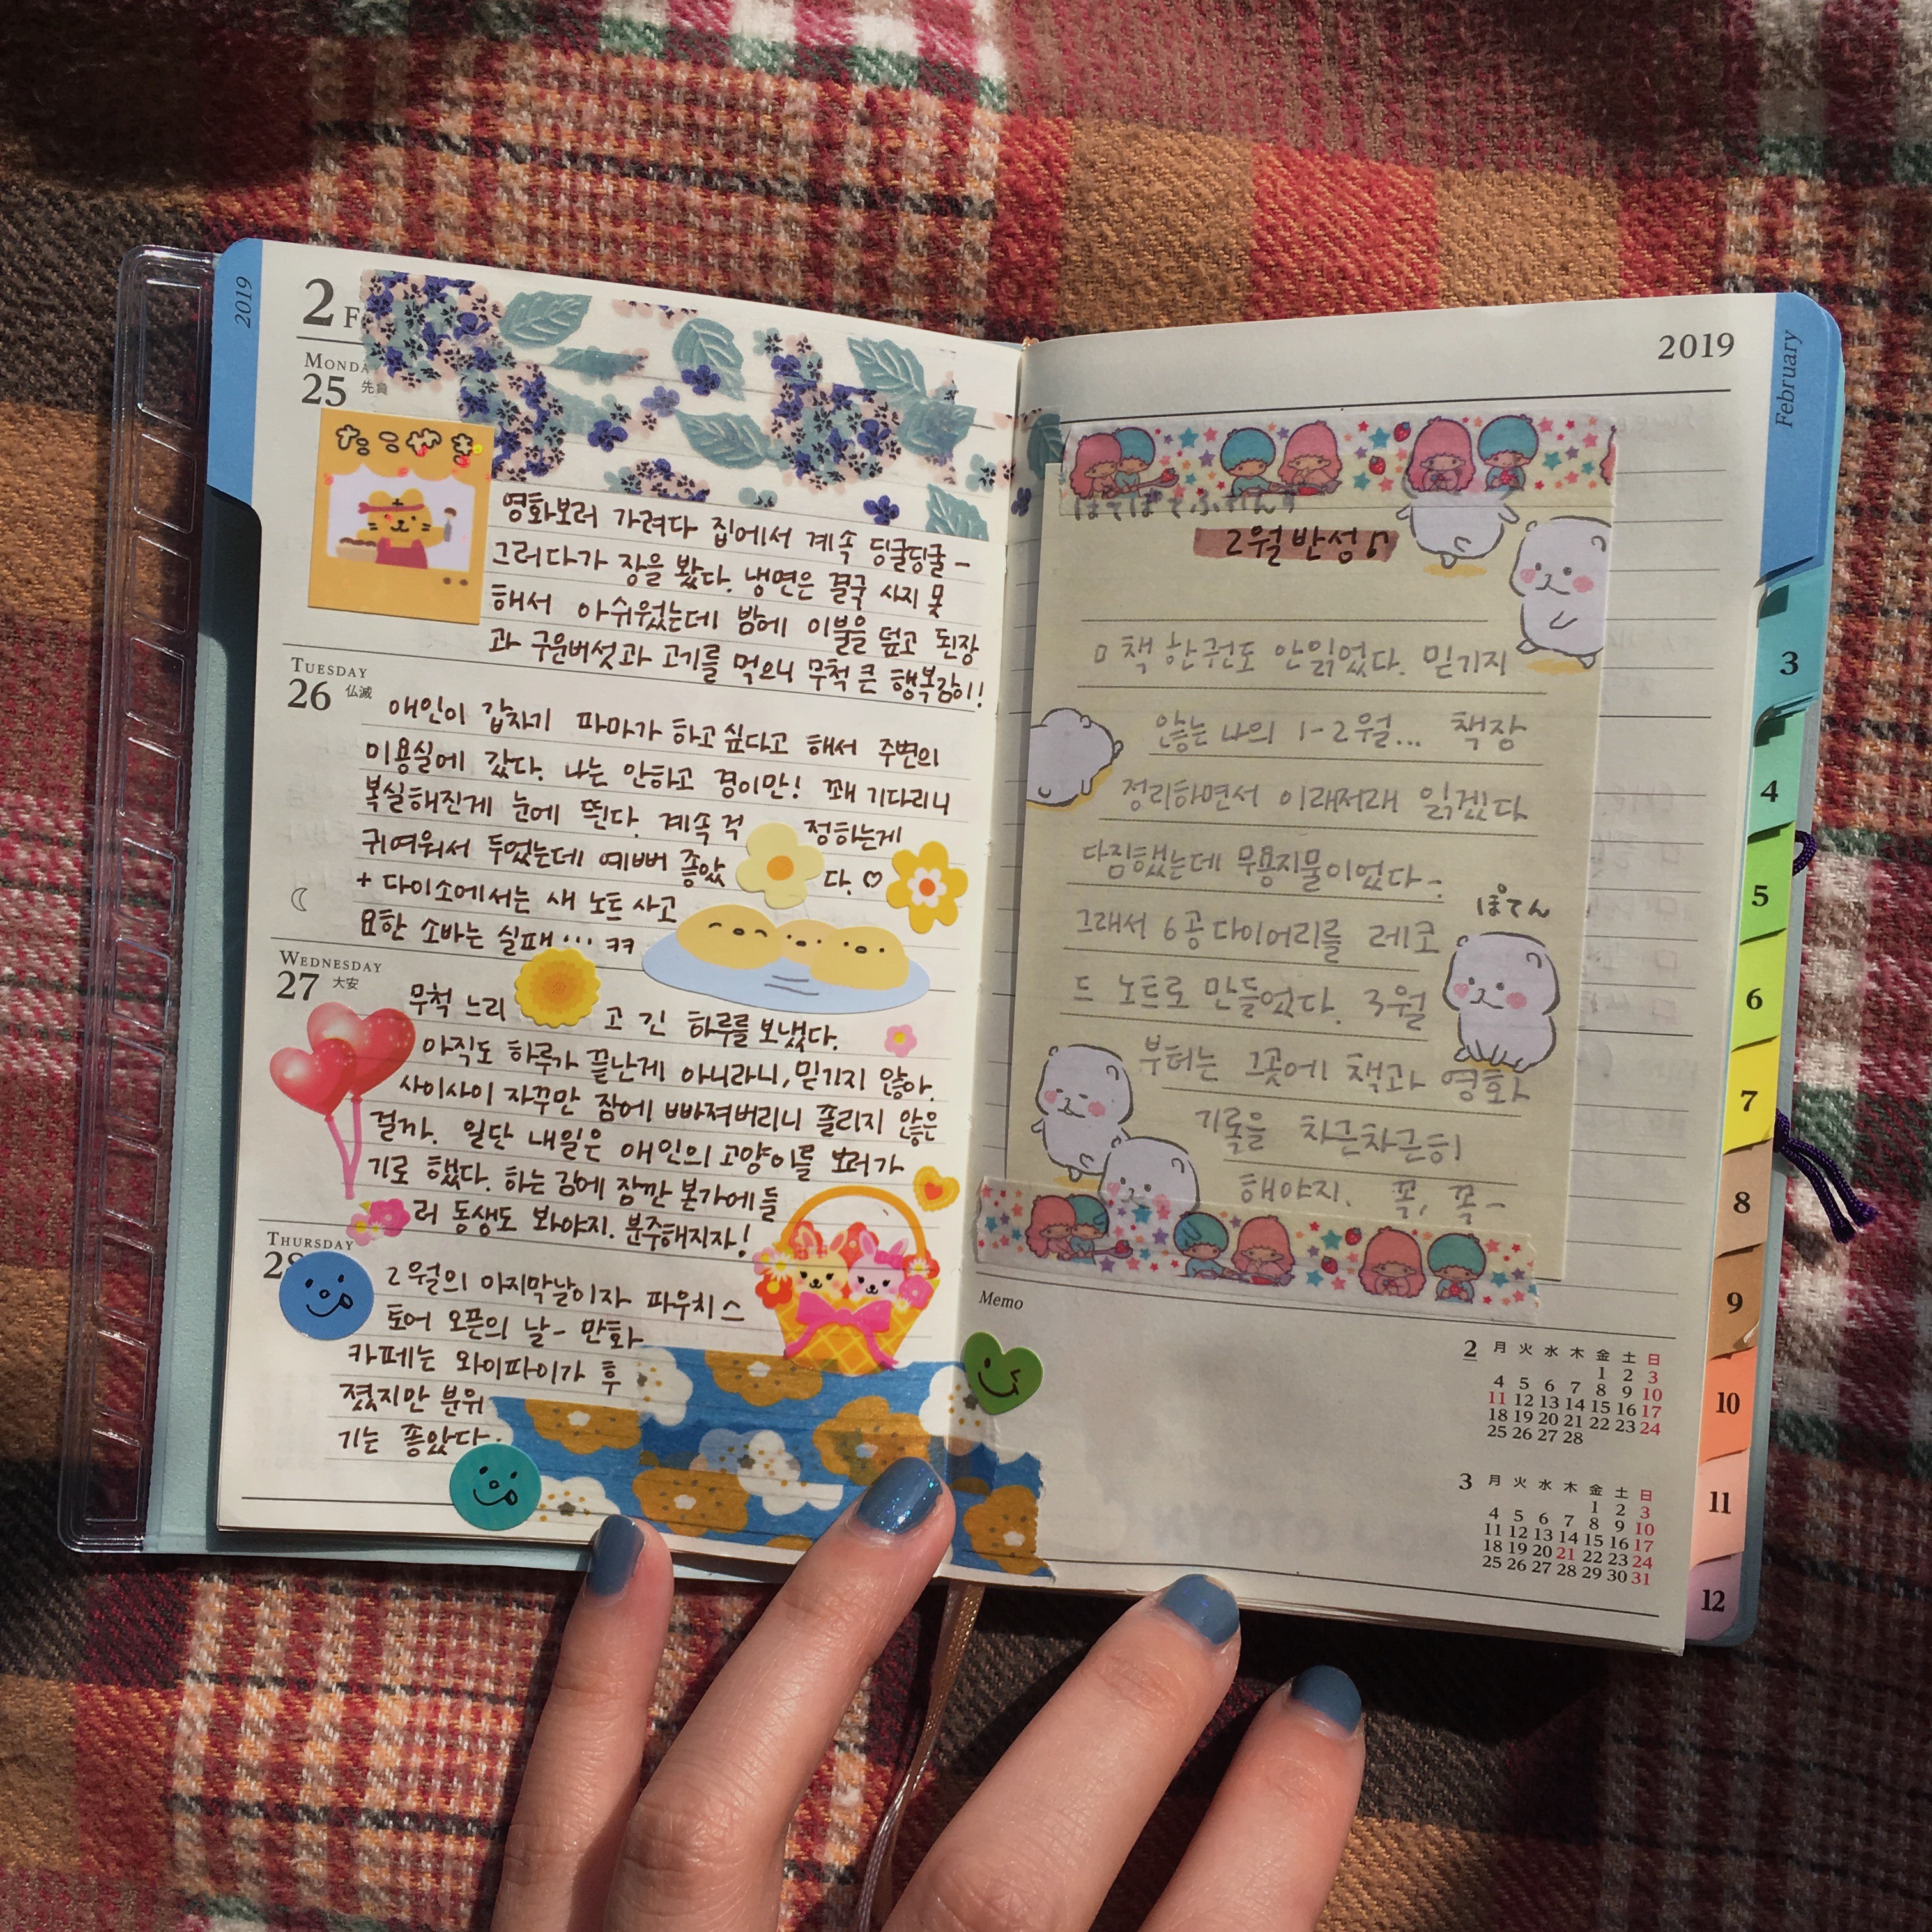 2019
2 F
MONDA
25 先負
たこやき
영화보러 가려다 집에서 계속 딩굴딩굴-
그러다가 장을 봤다. 냉면은 결국 사지 못
해서 아쉬웠는데 밤에 이불을 덮고 된장
과 구운버섯과 고기를 먹으니 무척 큰 행복감이!
TUESDAY
26 仏滅
애인이 갑자기 파마가 하고싶다고 해서 주변의
미용실에 갔다. 나는 안하고 경이만! 꽤 기다리니
복실해진게 눈에 띈다. 계속 걱정하는게
귀여워서 두었는데 예뻐 좋았다. ♡
+ 다이소에서는 새 노트 사고
요한 소바는 실패... ㅋㅋ
WEDNESDAY
27 大安
무척 느리고 긴 하루를 보냈다.
아직도 하루가 끝난게 아니라니, 믿기지 않아.
사이사이 자꾸만 잠에 빠져버리니 풀리지 않은
걸까. 일단 내일은 애인의 고양이를 보러가
기로 했다. 하는 김에 잠깐 본가에 들
러 동생도 봐야지. 분주해지자!
THURSDAY
28
2월의 마지막날이자 파우치 스
토어 오픈의 날- 만화
카페는 와이파이가 후
졌지만 분위
기는 좋았다.
2019
February
2월 반성♪
ㅁ 책 한권도 안읽었다. 믿기지
않는 나의 1-2월... 책장
정리하면서 이래저래 읽겠다
다짐했는데 무용지물이었다-
ぽてん
그래서 6공 다이어리를 레코
드 노트로 만들었다. 3월
부터는 그곳에 책과 영화
기록을 차근차근히
해야지. 꼭, 꼭-
Memo
2 月 火 水 木 金 土 日
1 2 3
4 5 6 7 8 9 10
11 12 13 14 15 16 17
18 19 20 21 22 23 24
25 26 27 28
3 月 火 水 木 金 土 日
1 2 3
4 5 6 7 8 9 10
11 12 13 14 15 16 17
18 19 20 21 22 23 24
25 26 27 28 29 30 31
3
4
5
6
7
8
9
10
11
12